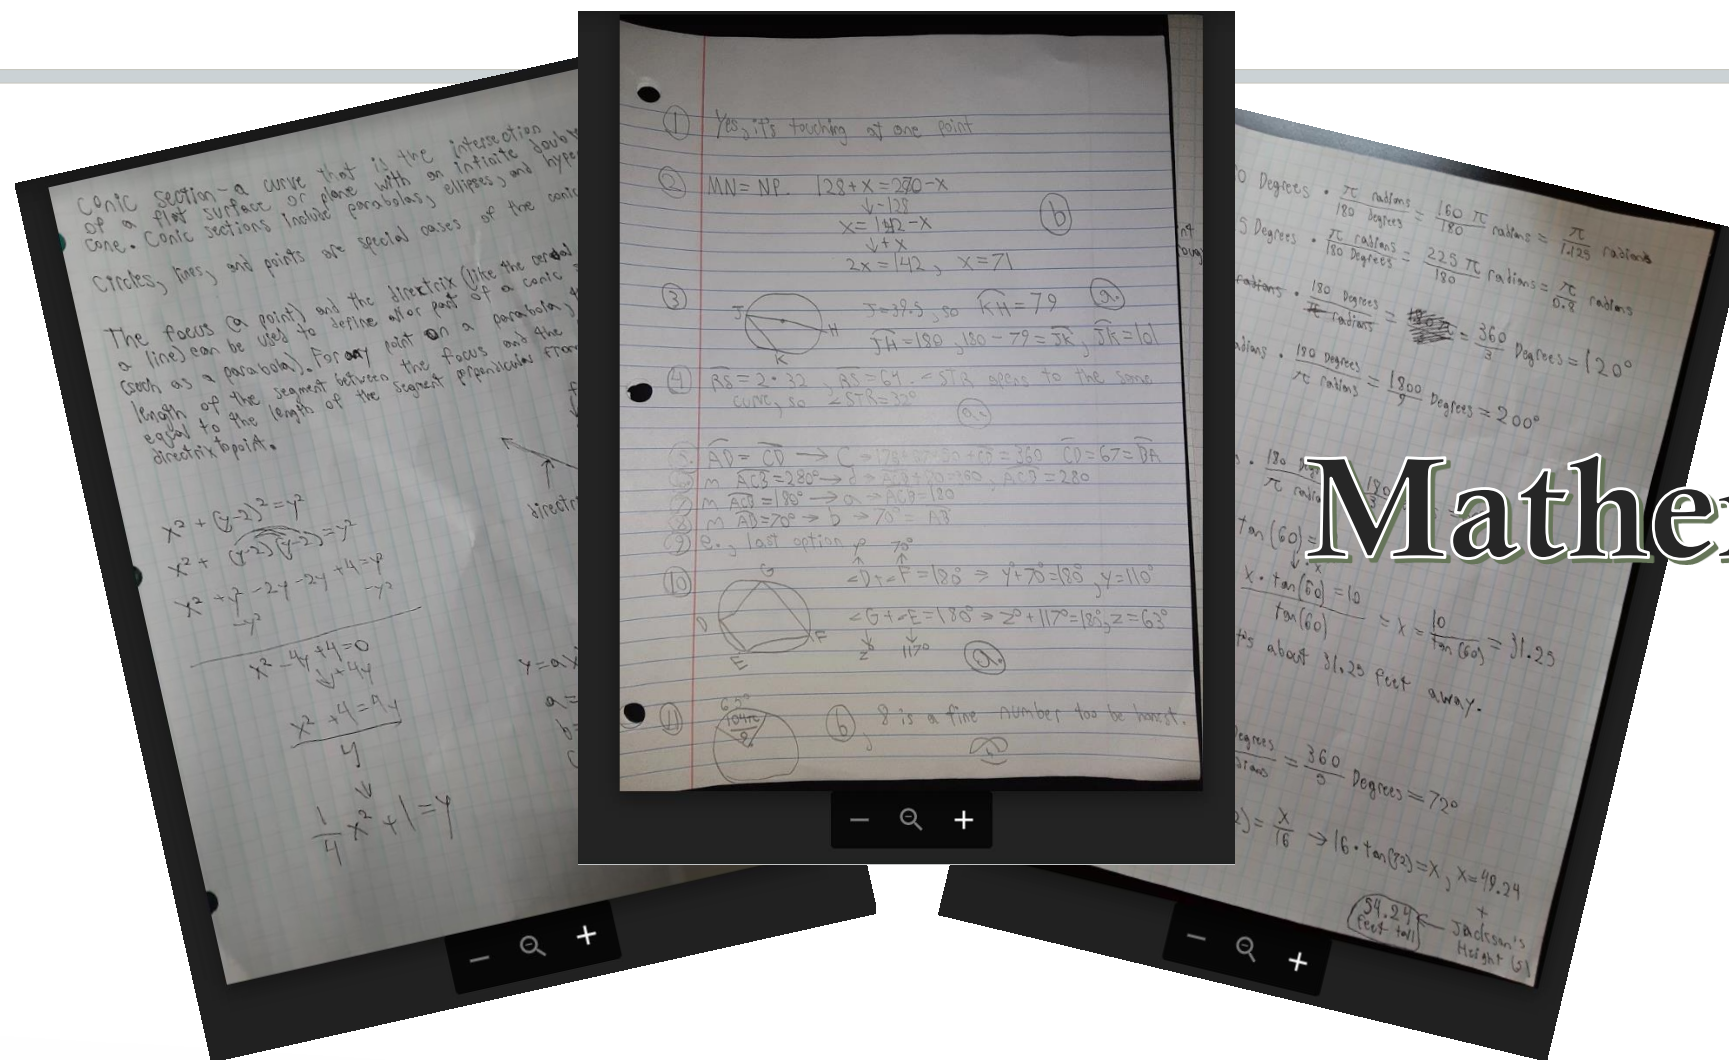 conic section - a curve that is the intersection
of a flat surface or plane with an infinite doubl
cone. Conic sections include parabolas, ellipses, and hype
Circles, lines, and points are special cases of the conic
The focus (a point) and the directrix (like the
a line) can be used to define all or part of a conic
(such as a parabola). For any point on a parabola,
length of the segment between the focus and the
equal to the length of the segment perpendicular from
directrix to point.
directri
x² + (y-2)² = y²
x² + (y-2)(y-2) = y²
x² + y² -2y -2y +4 = y²
-y² -y²
x² -4y +4 = 0
↓ +4y
x² +4 = 4y
y
↓
1/4 x² + 1 = y
y = ax
a =
b =
① Yes, it's touching at one point
② MN = NP. 128+x = 270-x
↓ -128
x = 142 - x
↓ + x
2x = 142, x = 71
ⓑ
③ J H K J = 39.5, so KH = 79 ⓐ.
JH = 180, 180 - 79 = JK, JK = 101
④ RS = 2·32, RS = 64. <STR opens to the same
curve, so <STR = 32°
ⓐ.
5. AD = CD → C → = 360 CD = 67 = DA
m ACB = 280° → d → ACB + 80 = 360, ACB = 280
⑦ m ACB = 180° → a → ACB = 180
⑧ m AB = 70° → b → 70° = AB
⑨ e., last option
y° 70°
⑩ <D + <F = 180° → y° + 70° = 180°, y = 110°
<G + <E = 180° → z° + 117° = 180, z = 63°
z° 117°
G D F E
ⓐ.
⑪ ⓑ, 8 is a fine number too be honest.
0 Degrees · π radians / 180 Degrees = 160 π / 180 radians = π / 1.125 radians
5 Degrees · π radians / 180 Degrees = 225 π / 180 radians = π / 0.8 radians
radians · 180 Degrees / π radians = 360 / 3 Degrees = 120°
adians · 180 Degrees / π radians = 1800 / 9 Degrees = 200°
180 Deg / π radia
Mathe
tan (60) =
x · tan(60) = 10 / tan(60) = x = 10 / tan(60) = 31.25
t's about 31.25 feet away.
egrees / dians = 360 / 5 Degrees = 72°
2) = x / 16 → 16 · tan(72) = x, x = 49.24
+
54.24 feet tall ← Jackson's
Height (5)